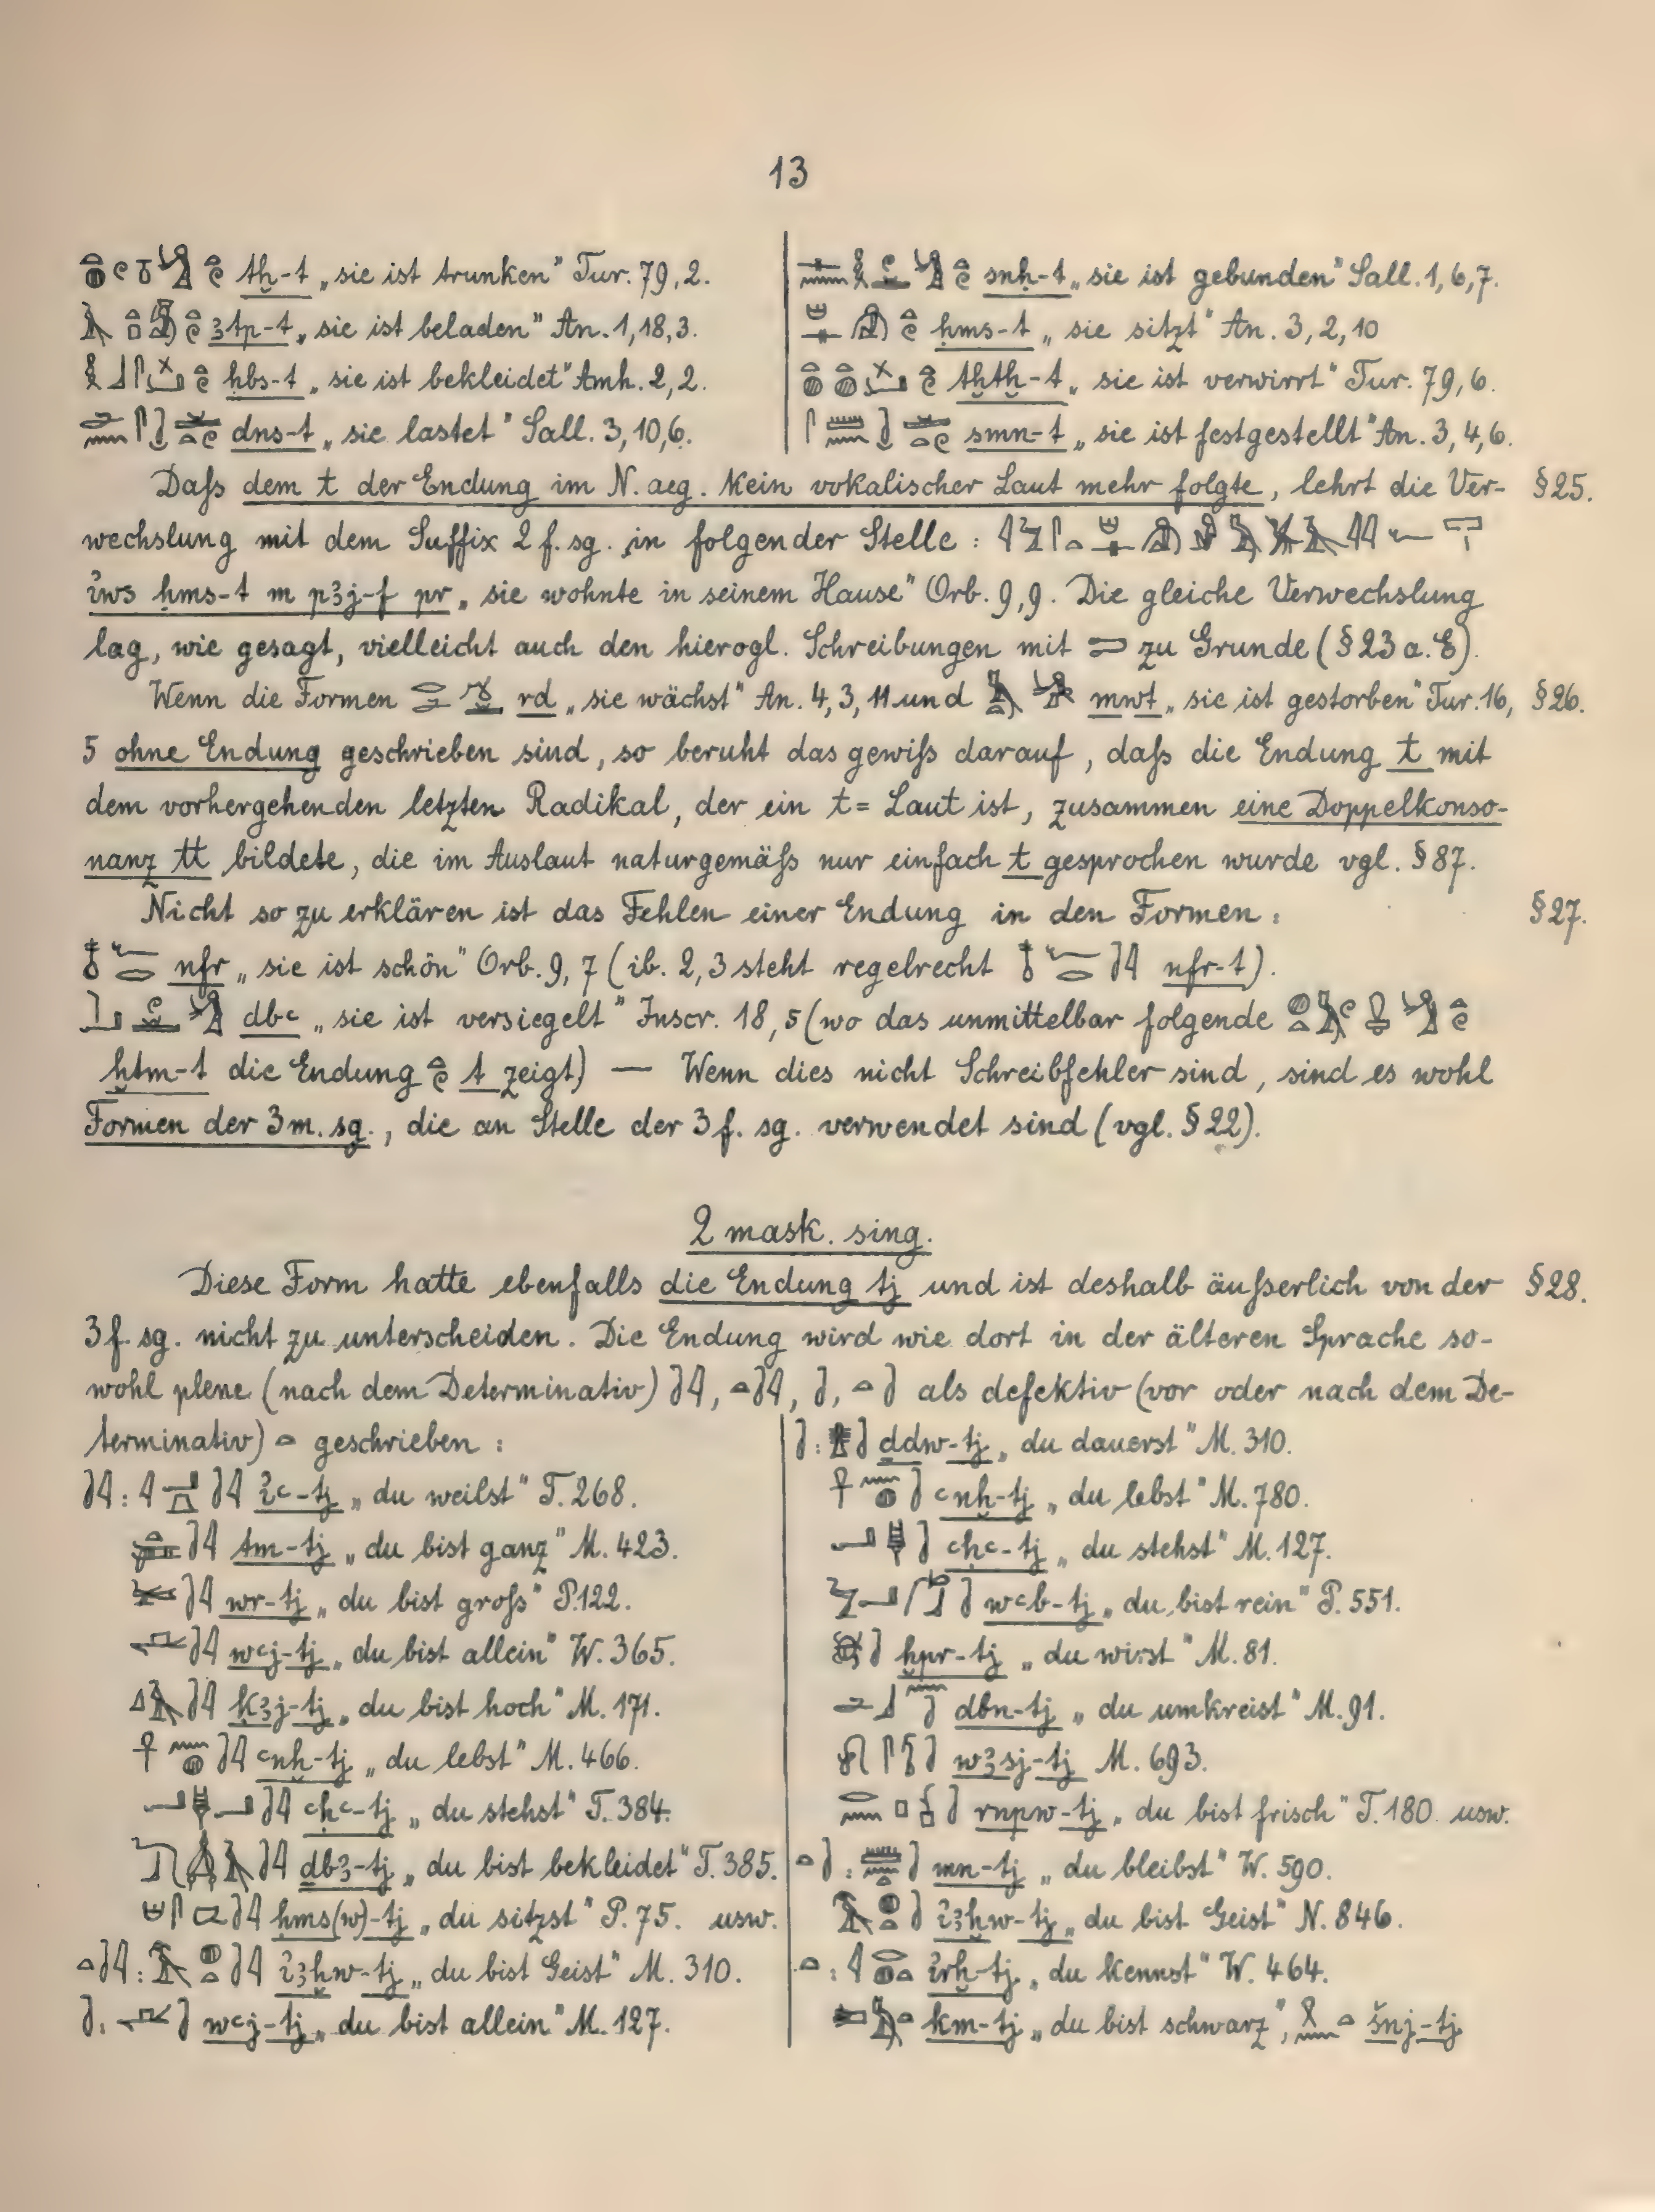 13
tẖ-t „sie ist trunken" Tur. 79,2.
ꜣtp-t „sie ist beladen" An. 1,18,3.
ḥbs-t „sie ist bekleidet" Amh. 2,2.
dns-t „sie lastet" Sall. 3,10,6.
snḥ-t „sie ist gebunden" Sall. 1,6,7.
ḥms-t „sie sitzt" An. 3,2,10
tḫtḫ-t „sie ist verwirrt" Tur. 79,6.
smn-t „sie ist festgestellt" An. 3,4,6.
Daſs dem t der Endung im N. aeg. kein vokalischer Laut mehr folgte, lehrt die Ver- §25.
wechslung mit dem Suffix 2 f. sg. in folgender Stelle :
ı͗ws ḥms-t m pꜣj-f pr „sie wohnte in seinem Hause" Orb. 9,9. Die gleiche Verwechslung
lag, wie gesagt, vielleicht auch den hierogl. Schreibungen mit zu Grunde (§23 a. E).
Wenn die Formen rd „sie wächst" An. 4,3,11 und mwt „sie ist gestorben" Tur. 16, §26.
5 ohne Endung geschrieben sind, so beruht das gewiſs darauf, daſs die Endung t mit
dem vorhergehenden letzten Radikal, der ein t= Laut ist, zusammen eine Doppelkonso-
nanz tt bildete, die im Auslaut naturgemäſs nur einfach t gesprochen wurde vgl. §87.
Nicht so zu erklären ist das Fehlen einer Endung in den Formen : §27.
nfr „sie ist schön" Orb. 9,7 (ib. 2,3 steht regelrecht nfr-t).
dbꜥ „sie ist versiegelt" Inscr. 18,5 (wo das unmittelbar folgende
ḫtm-t die Endung t zeigt) — Wenn dies nicht Schreibfehler sind, sind es wohl
Formen der 3 m. sg., die an Stelle der 3 f. sg. verwendet sind (vgl. §22).
2 mask. sing.
Diese Form hatte ebenfalls die Endung tj und ist deshalb äuſserlich von der §28.
3 f. sg. nicht zu unterscheiden. Die Endung wird wie dort in der älteren Sprache so-
wohl plene (nach dem Determinativ) , , , als defektiv (vor oder nach dem De-
terminativ) geschrieben :
: ı͗ꜥ-tj „du weilst" T. 268.
tm-tj „du bist ganz" M. 423.
wr-tj „du bist groſs" P. 122.
wꜥj-tj „du bist allein" W. 365.
ḳꜣj-tj „du bist hoch" M. 171.
ꜥnḫ-tj „du lebst" M. 466.
ꜥḥꜥ-tj „du stehst" T. 384.
ḏbꜣ-tj „du bist bekleidet" T. 385.
ḥms(w)-tj „du sitzst" P. 75. usw.
: ı͗ꜣḫw-tj „du bist Geist" M. 310.
: wꜥj-tj „du bist allein" M. 127.
: ḏdw-tj „du dauerst" M. 310.
ꜥnḫ-tj „du lebst" M. 780.
ꜥḥꜥ-tj „du stehst" M. 127.
wꜥb-tj „du bist rein" P. 551.
ḫpr-tj „du wirst" M. 81.
dbn-tj „du umkreist" M. 91.
wꜣsj-tj M. 693.
rnpw-tj „du bist frisch" T. 180. usw.
: mn-tj „du bleibst" W. 590.
ı͗ꜣḫw-tj „du bist Geist" N. 846.
: ı͗rḫ-tj „du kennst" W. 464.
km-tj „du bist schwarz", šnj-tj